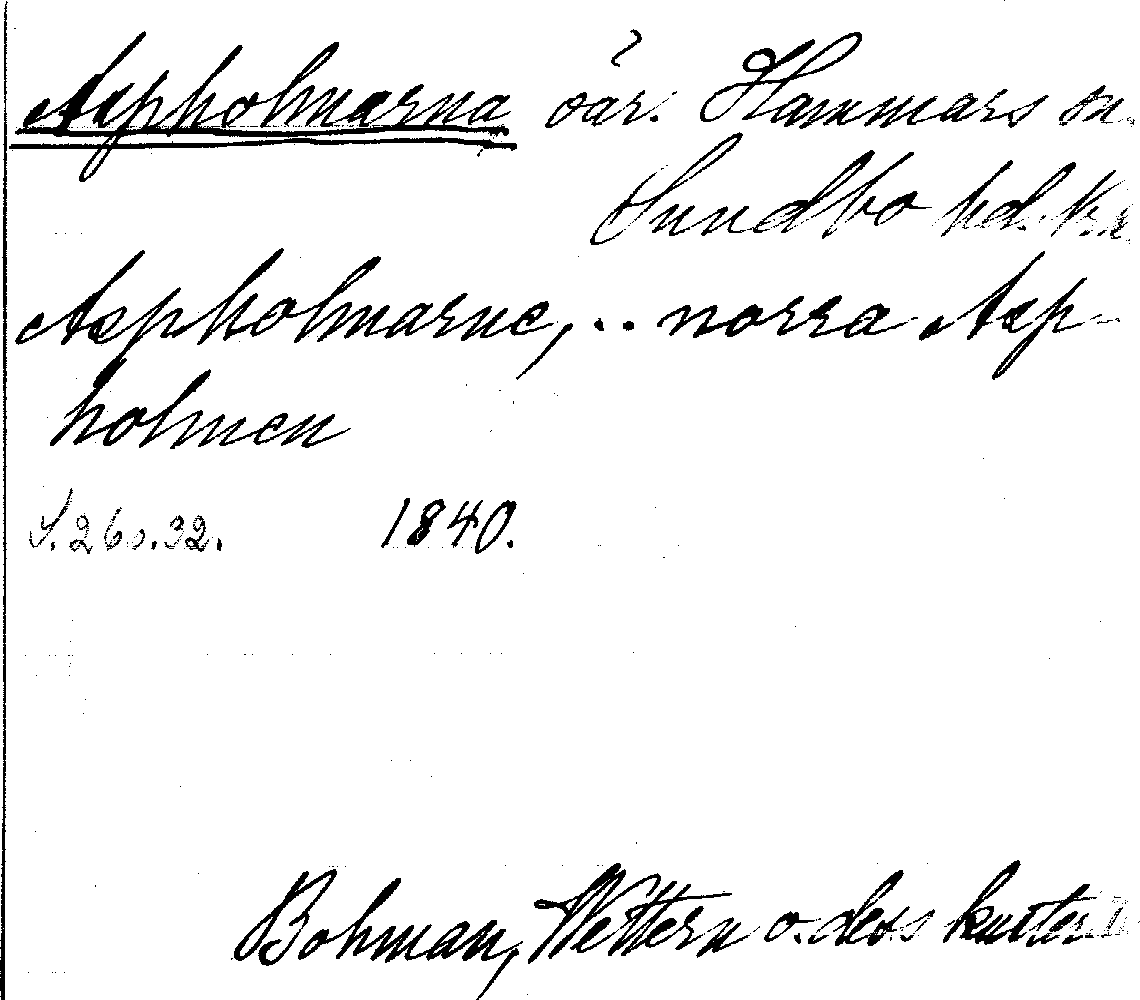 Aspholmarna öar. Hammars sn.
Sundbo hd.
Aspholmarne, .. norra Asp-
holmen
S. 26 o. 32. 1840.
Bohman, Wettern o. dess kuster